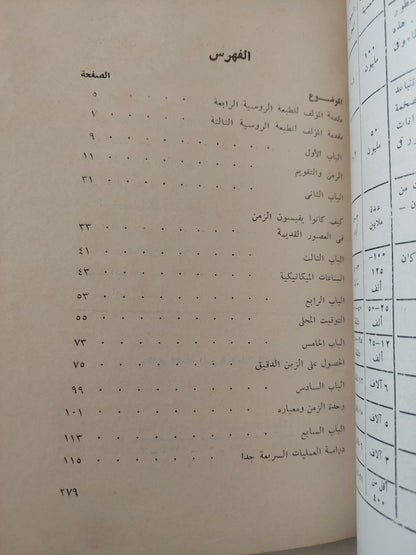 الفهرس
الموضوع الصفحة
مقدمة المؤلف للطبعة الروسية الرابعة . . . . . ٥
مقدمة المؤلف للطبعة الروسية الثالثة . . . . . ٧
الباب الأول . . . . . ٩
الزمن والتقويم . . . . . ١١
الباب الثانى . . . . . ٣١
كيف كانوا يقيسون الزمن
فى العصور القديمة . . . . . ٣٣
الباب الثالث . . . . . ٤١
الساعات الميكانيكية . . . . . ٤٣
الباب الرابع . . . . . ٥٣
التوقيت المحلى . . . . . ٥٥
الباب الخامس . . . . . ٧٣
الحصول على الزمن الدقيق . . . . . ٧٥
الباب السادس . . . . . ٩٩
وحدة الزمن ومعياره . . . . . ١٠١
الباب السابع . . . . . ١١٣
دراسة العمليات السريعة جدا . . . . . ١١٥
٢٧٩
١٠٠
مليون
٥٠
مليون
عدة
ملايين
١٠٠–
١٢٥
ألف
٢٥–٥٠
ألف
١٢–٢٥
ألف
٦ آلاف
٥ آلاف
٣ آلاف
أقل من
٤٠٠